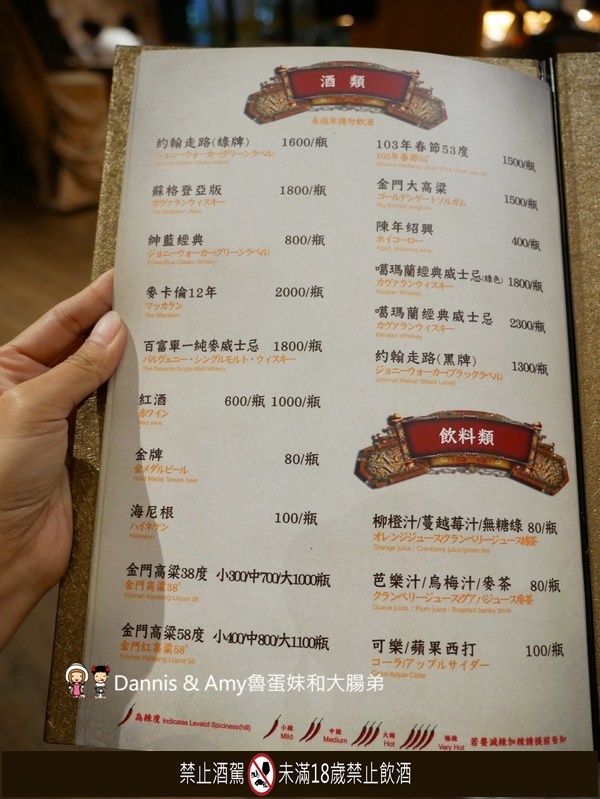 酒類
未成年請勿飲酒
約翰走路(綠牌) 1600/瓶
ジョニーウォーカー(グリーンラベル)
蘇格登亞版 1800/瓶
カヴァランウィスキー
紳藍經典 800/瓶
ジョニーウォーカー(グリーンラベル)
麥卡倫12年 2000/瓶
マッカラン
The Macallan
百富單一純麥威士忌 1800/瓶
バルヴェニー・シングルモルト・ウィスキー
The Balvenie Single Malt Whisky
紅酒 600/瓶 1000/瓶
赤ワイン
Red wine
金牌 80/瓶
金メダルビール
Gold Medal Taiwan beer
海尼根 100/瓶
ハイネケン
Heineken
金門高粱38度 小300/中700/大1000/瓶
金門高粱38°
Kinmen Kaoliang Liquor 38
金門高粱58度 小400/中800/大1100/瓶
金門紅高粱58°
Kinmen Kaoliang Liquor 58
103年春節53度 1500/瓶
103年春節53°
金門大高粱 1500/瓶
ゴールデンゲートソルガム
陳年紹興 400/瓶
ホイコーロー
噶瑪蘭經典威士忌(綠色) 1800/瓶
カヴァランウィスキー
Kavalan Whiskey
噶瑪蘭經典威士忌 2300/瓶
カヴァランウィスキー
Kavalan Whiskey
約翰走路(黑牌) 1300/瓶
ジョニーウォーカー(ブラックラベル)
Johnnie Walker (Black Label)
飲料類
柳橙汁/蔓越莓汁/無糖綠 80/瓶
オレンジジュース/クランベリージュース/緑茶
Orange juice / Cranberry juice/green tea
芭樂汁/烏梅汁/麥茶 80/瓶
クランベリージュース/グアバジュース/麥茶
Guava juice / Plum juice / Roasted barley time
可樂/蘋果西打 100/瓶
コーラ/アップルサイダー
Coke/Apple Cider
Dannis & Amy魯蛋妹和大腸弟
為辣度 Indicates Levelof Spiciness(hill)
小辣 Mild
中辣 Medium
大辣 Hot
極辣 Very Hot
若要減辣加辣請提前告知
禁止酒駕 未滿18歲禁止飲酒